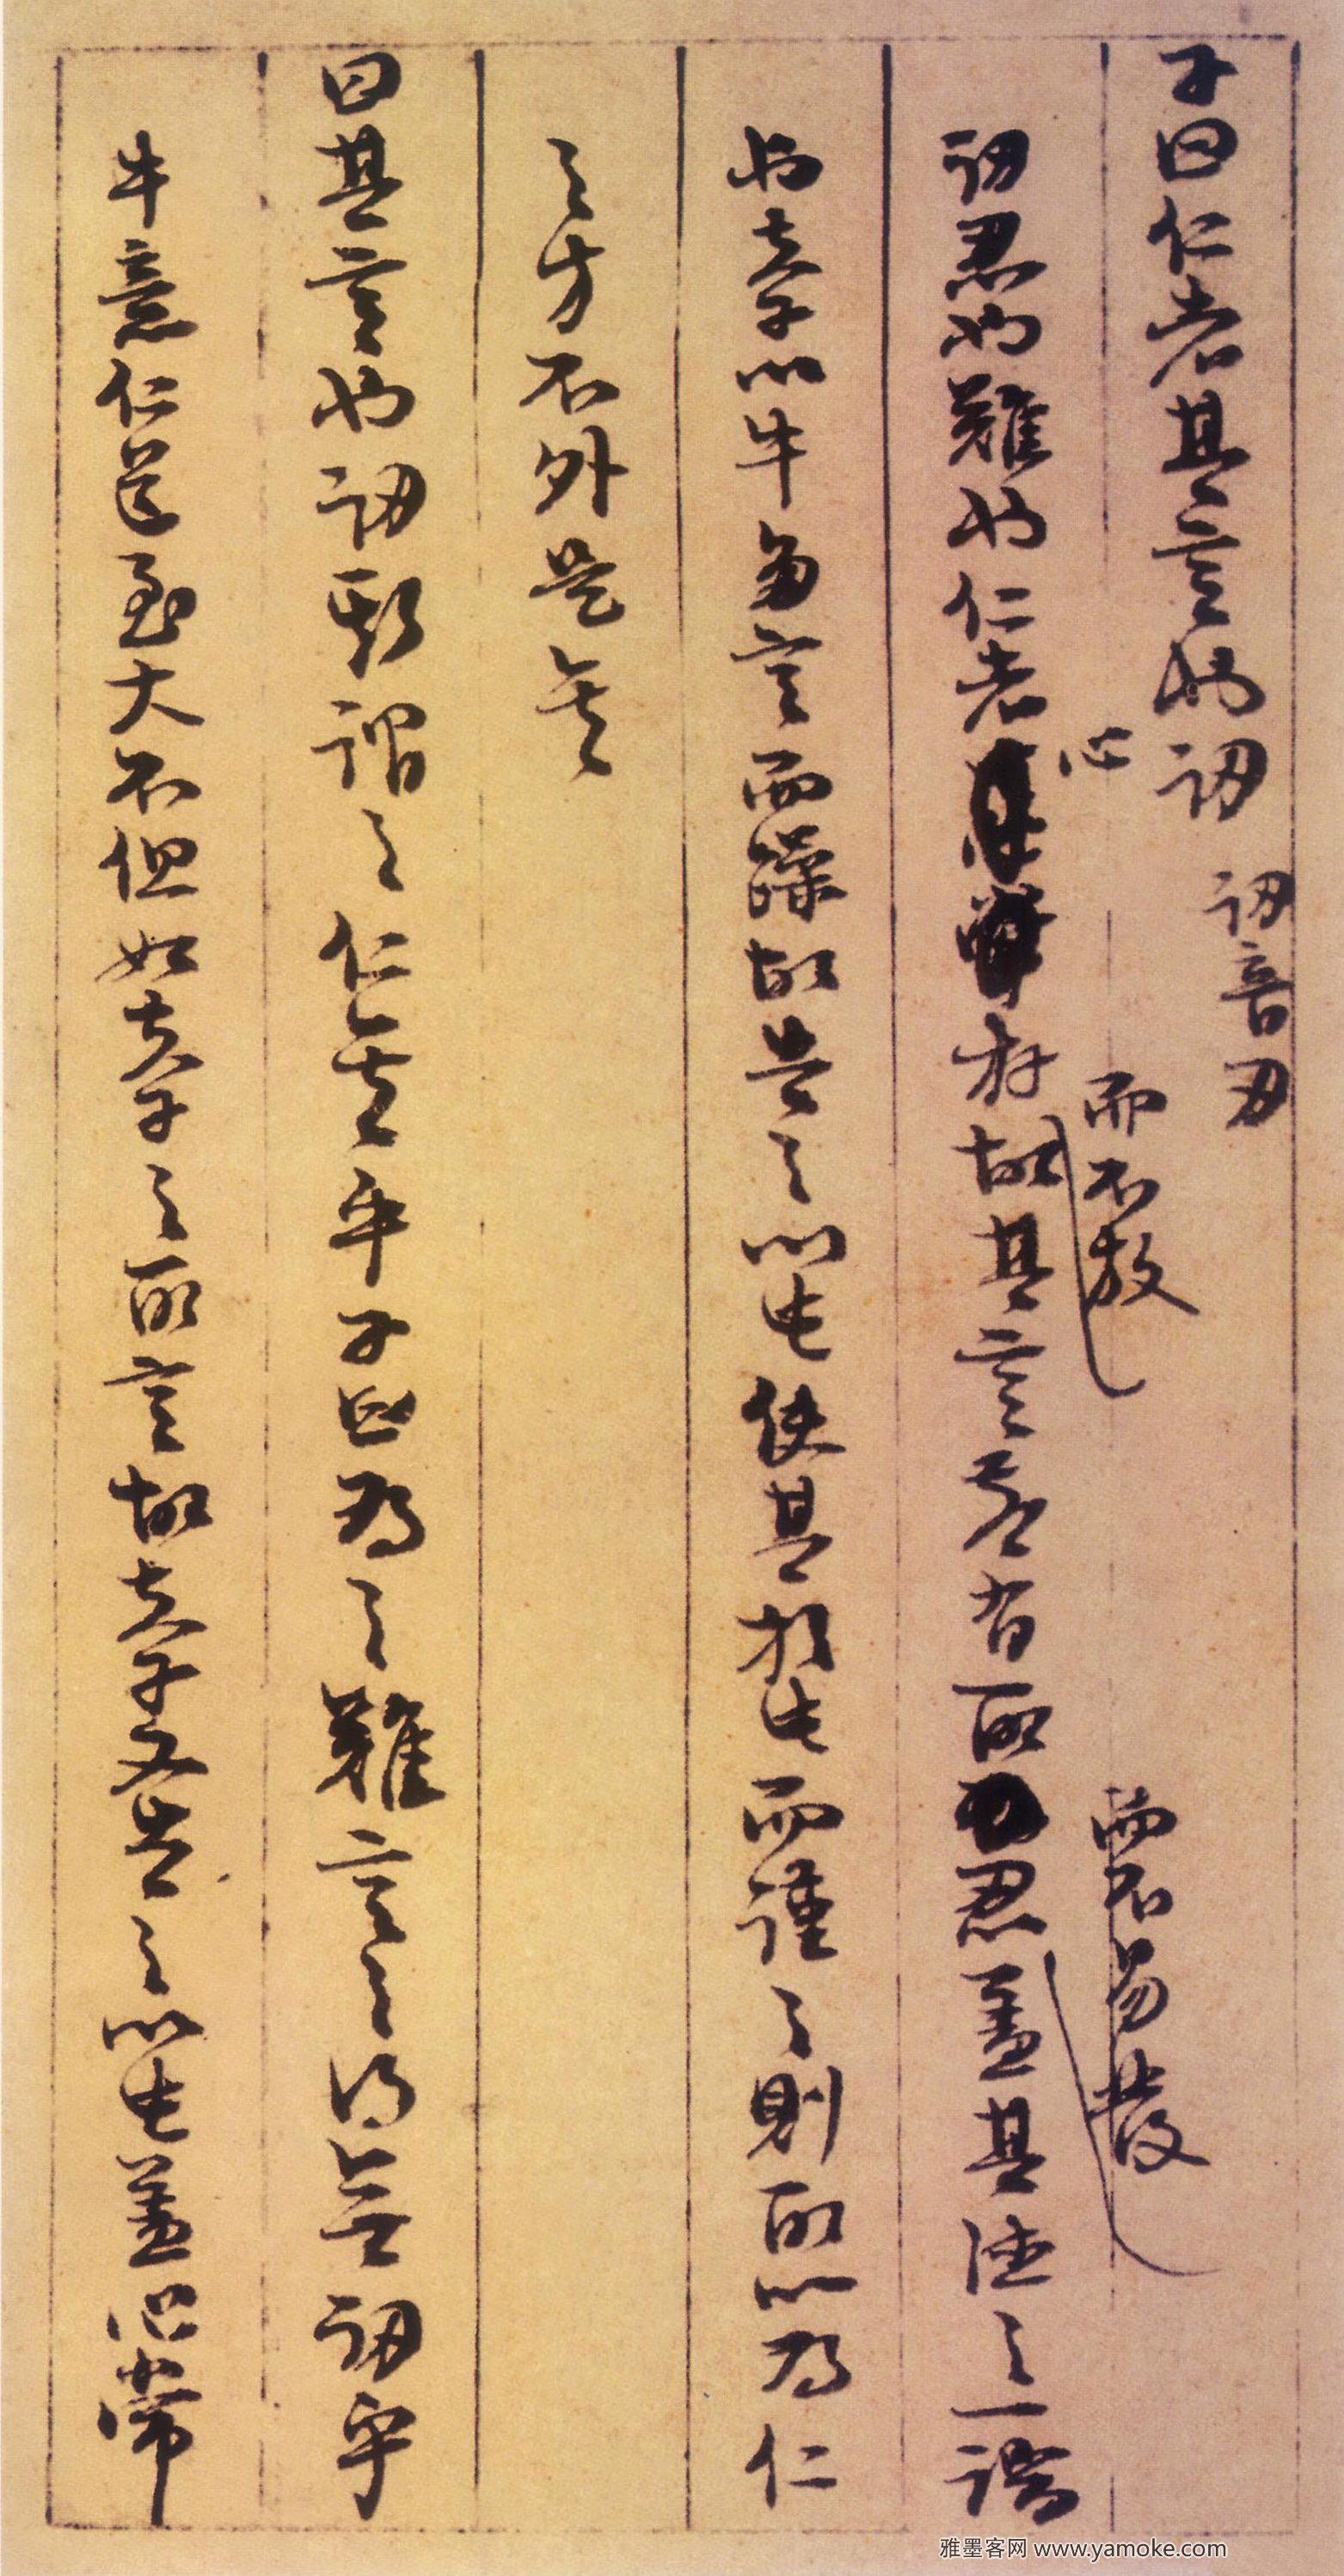 子曰仁者其言也訒 訒音刃
訒忍也難也仁者心存而不放故其言若有所忍而不易發蓋其德之一端
也夫子以牛多言而躁故告之以此使其於此而謹之則所以為仁
之方不外是矣
曰其言也訒斯謂之仁矣乎子曰為之難言之得無訒乎
牛意仁道至大不但如夫子之所言故夫子又告之以此蓋心常
雅墨客网 www.yamoke.com